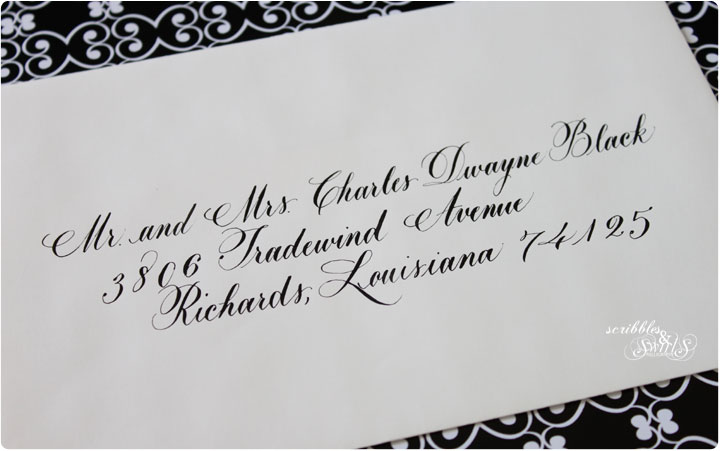 Mr. and Mrs. Charles Dwayne Black
3806 Tradewind Avenue
Richards, Louisiana 74125
scribbles
&
swirls